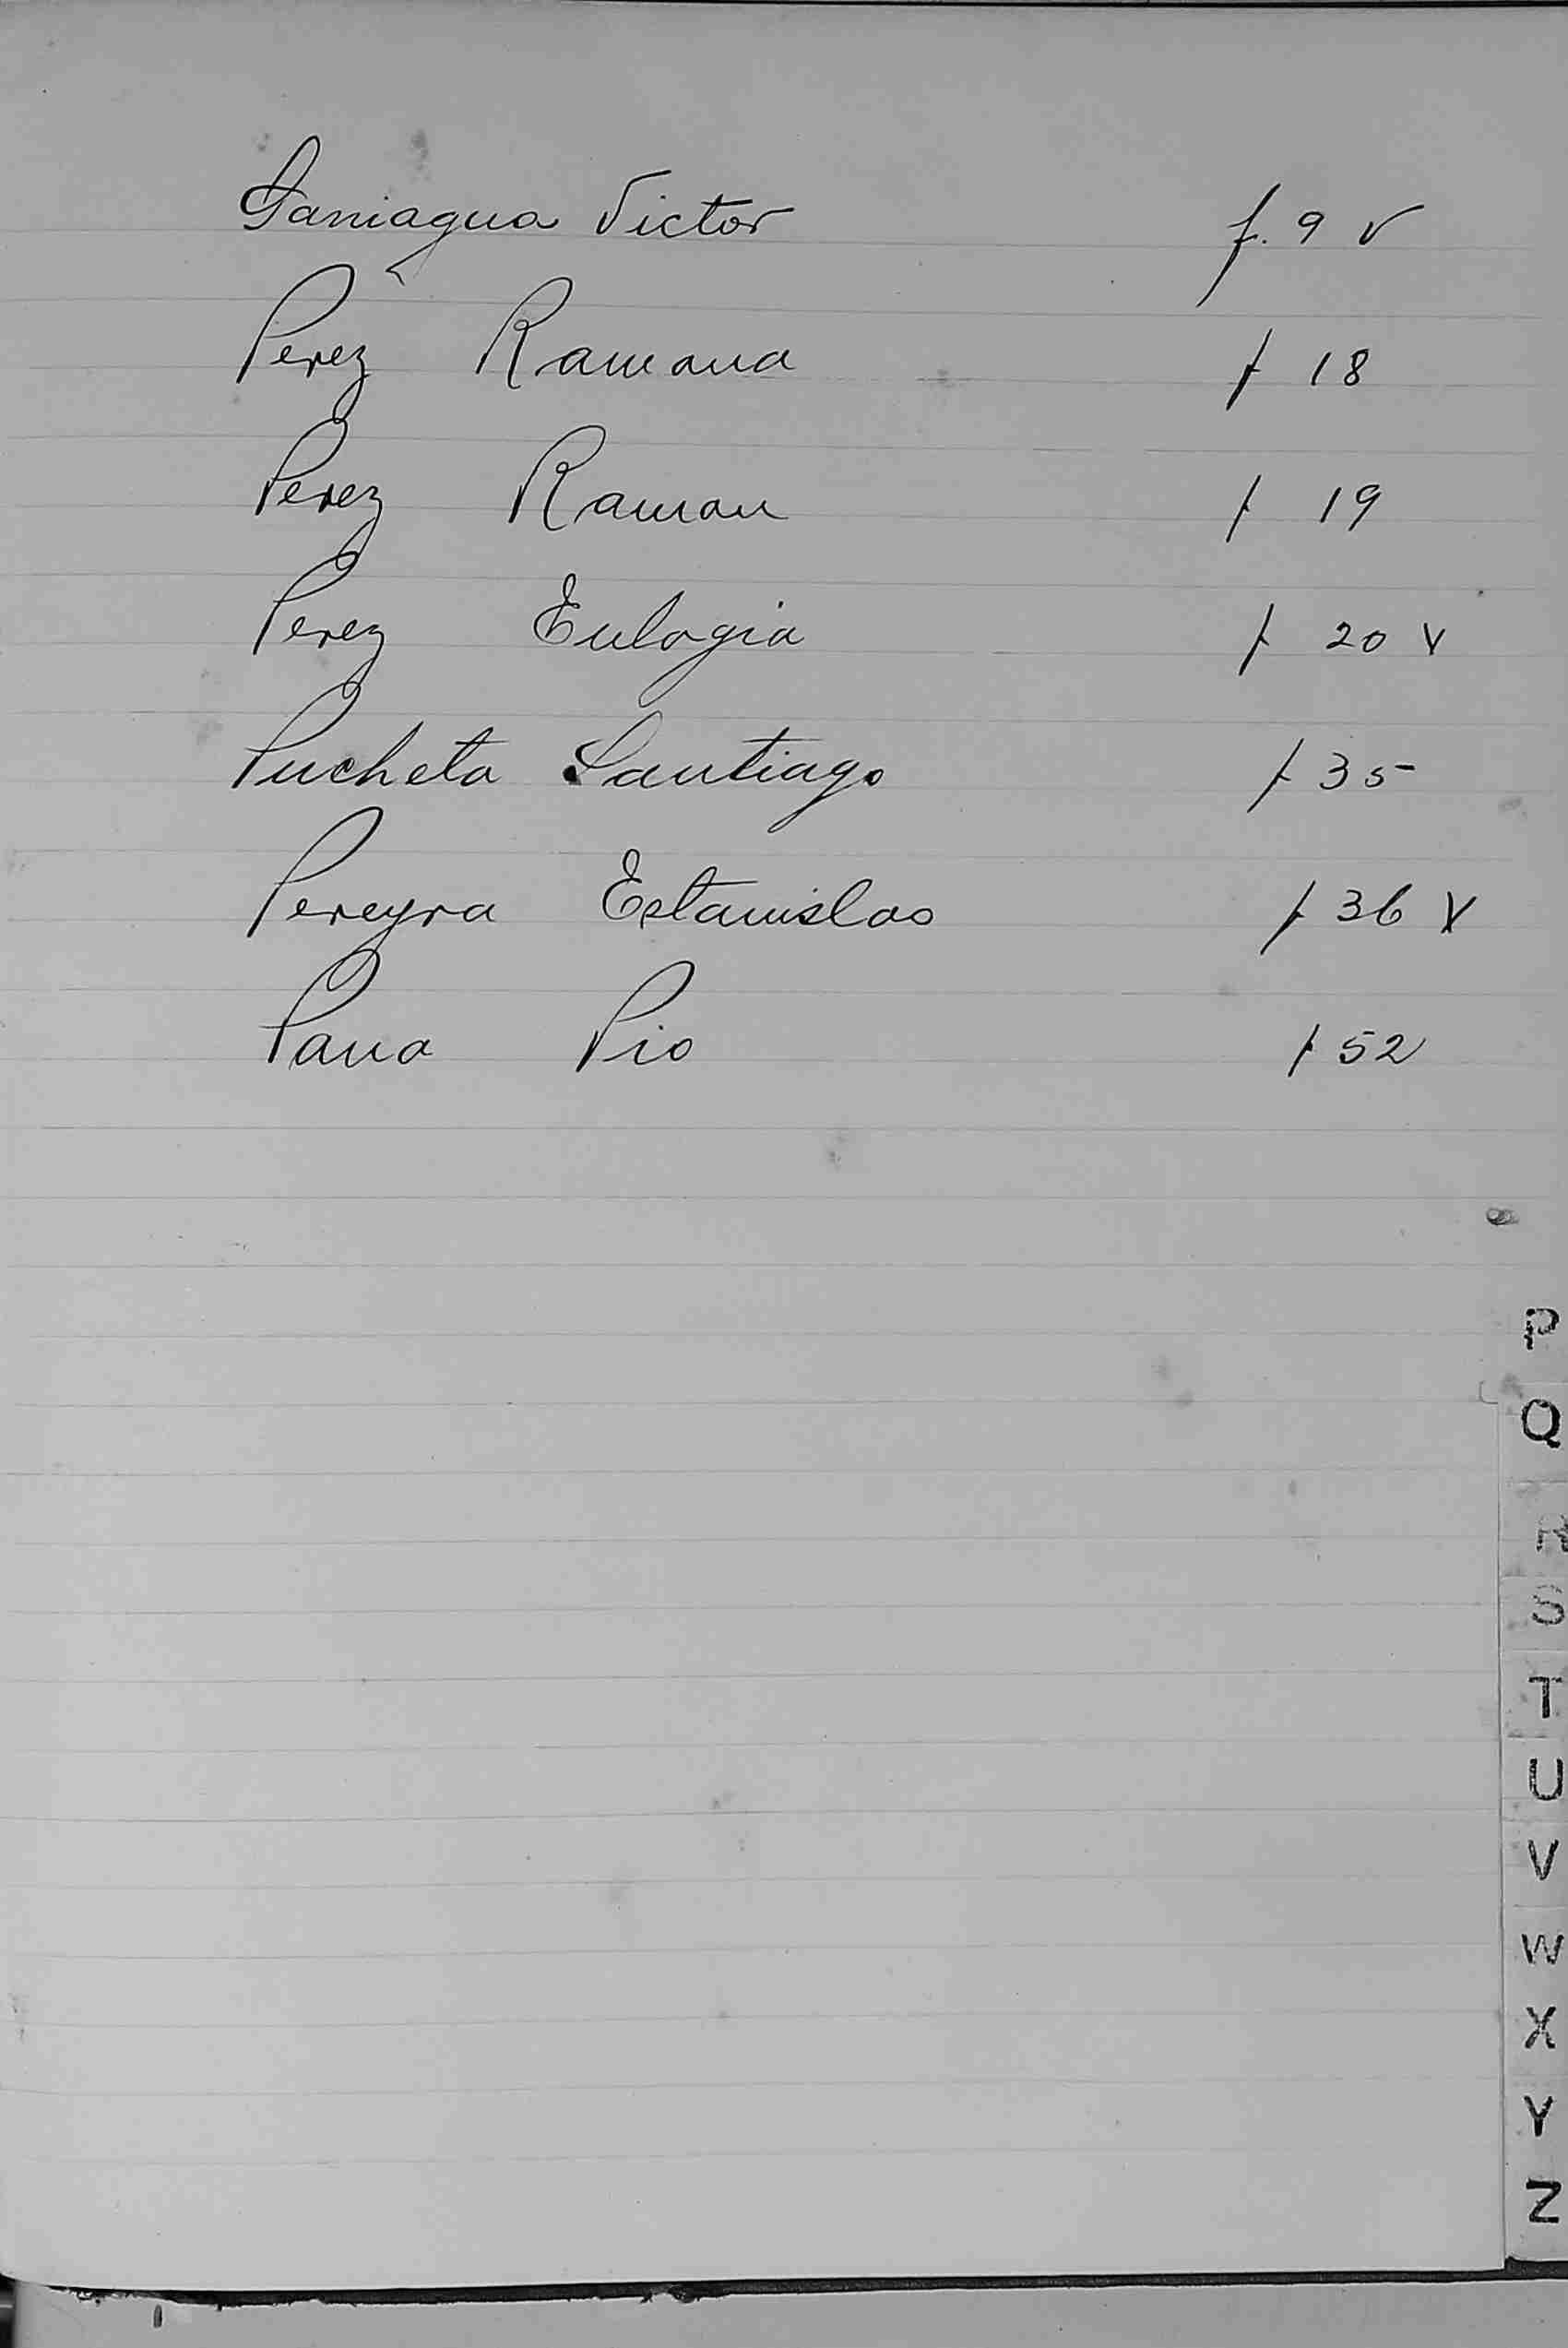 Paniagua Victor f. 9 v
Perez Ramona f 18
Perez Ramon f 19
Perez Eulogia f 20 v
Pucheta Santiago f 35
Pereyra Estanislao f 36 v
Pio f 52
P
Q
R
S
T
U
V
W
X
Y
Z